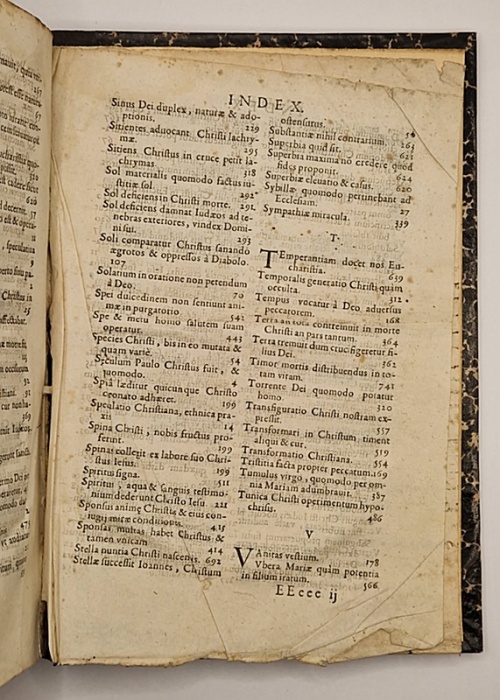 INDEX.
Sinus Dei duplex, naturæ & ado-
ptionis. 229
Sitientes aduocant Christi lachry-
mæ. 295
Sitiens Christus in cruce petit la-
chrymas. 318
Sol materialis quomodo factus iu-
stitiæ sol. 292
Sol deficiens in Christi morte. 291
Sol deficiens damnat Iudæos ad te-
nebras exteriores, vindex Domi-
ni sui. 293
Soli comparatur Christus sanando
ægrotos & oppressos à Diabolo.
107
Solatium in oratione non petendum
à Deo. 70
Spei dulcedinem non sentiunt ani-
mæ in purgatorio. 542
Spe & metu homo salutem suam
operatur. 443
Species Christi, bis in eo mutata &
quam variè. 54
Speculum Paulo Christus fuit, &
quomodo. 4
Spinâ læditur quicunque Christo
coronato adhæret. 199
Speculatio Christiana, ethnica pra-
xis 14
Spina Christi, nobis fructus pro-
ferunt. 199
Spinas collegit ex labore suo Chri-
stus Iesus. 199
Spiritus signa. 511
Spiritus, aqua & sanguis testimo-
nium dederunt Christo Iesu 221
Sponsus animę Christus & eius con-
iugij miræ conditiones. 435
Sponsas multas habet Christus &
tamen vnicam 414
Stella nuntia Christi nascentis. 692
Stellæ successit Ioannes, Christum
ostensurus. 54
Substantiæ nihil contrarium. 265
Superbia quid sit. 623
Superbia maxima no credere quod
fides proponit. 624
Superbiæ eleuatio & casus. 620
Sybillæ quomodo pertinebant ad
Ecclesiam. 27
Sympathiæ miracula. 339
T.
TEmperantiam docet nos Eu-
charistia. 639
Temporalis generatio Christi quàm
occulta. 312
Tempus vocatur à Deo aduersus
peccatorem. 168
Terra an tota contremuit in morte
Christi an pars tantum. 364
Terra tremuit dum crucifigeretur fi-
lius Dei. 362
Timor mortis distribuendus in to-
tam vitam. 741
Torrente Dei quomodo potatur
homo. 320
Transfiguratio Christi nostram ex-
pressit. 557
Transformari in Christum timent
aliqui & cur. 519
Transformatio Christiana. 554
Tristitia facta propter peccatum. 169
Tumulus virgo, quomodo per om-
nia Mariam adumbrauit. 387
Tunica Christi operimentum hypo-
chrisis. 486
V
VAnitas vestium. 178
Vbera Mariæ quàm potentia
in filium iratum. 566
EEeee ij